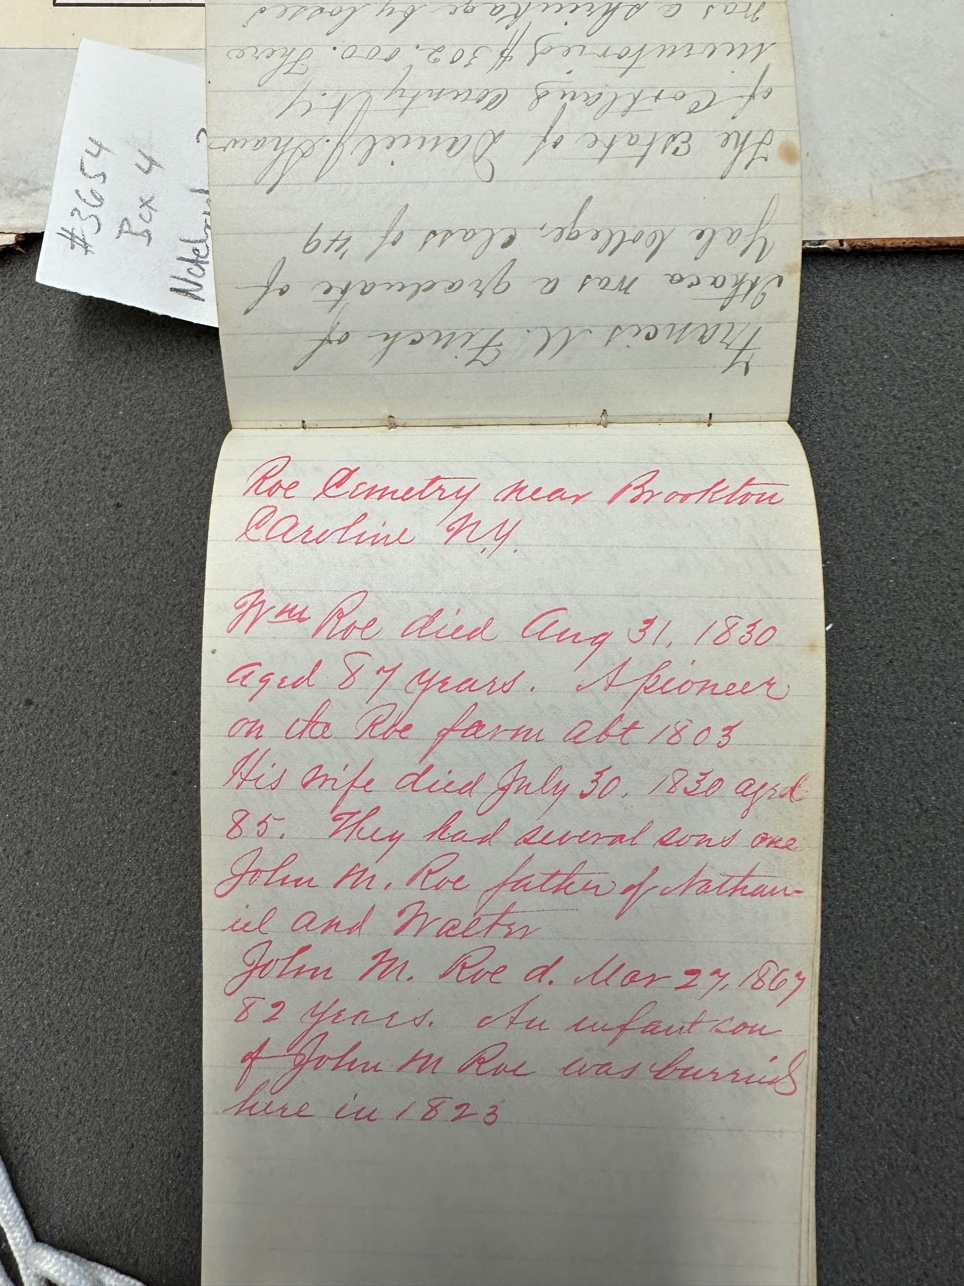 #3654
Box 4
Francis M. Finch of
Ithaca was a graduate of
Yale College, Class of '49
The Estate of Daniel J. Shaw
of Cortland County N.Y
inventoried $302.000. There
was a shrinkage by losses
Roe Cemetry near Brookton
Caroline N.Y.
Wm Roe died Aug 31, 1830
aged 87 years. A pioneer
on the Roe farm abt 1803
His wife died July 30, 1830 aged
85. They had several sons one
John M. Roe father of Nathan-
iel and Walter
John M. Roe d. Mar 27, 1867
82 years. An infant son
of John M Roe was burried
here in 1823